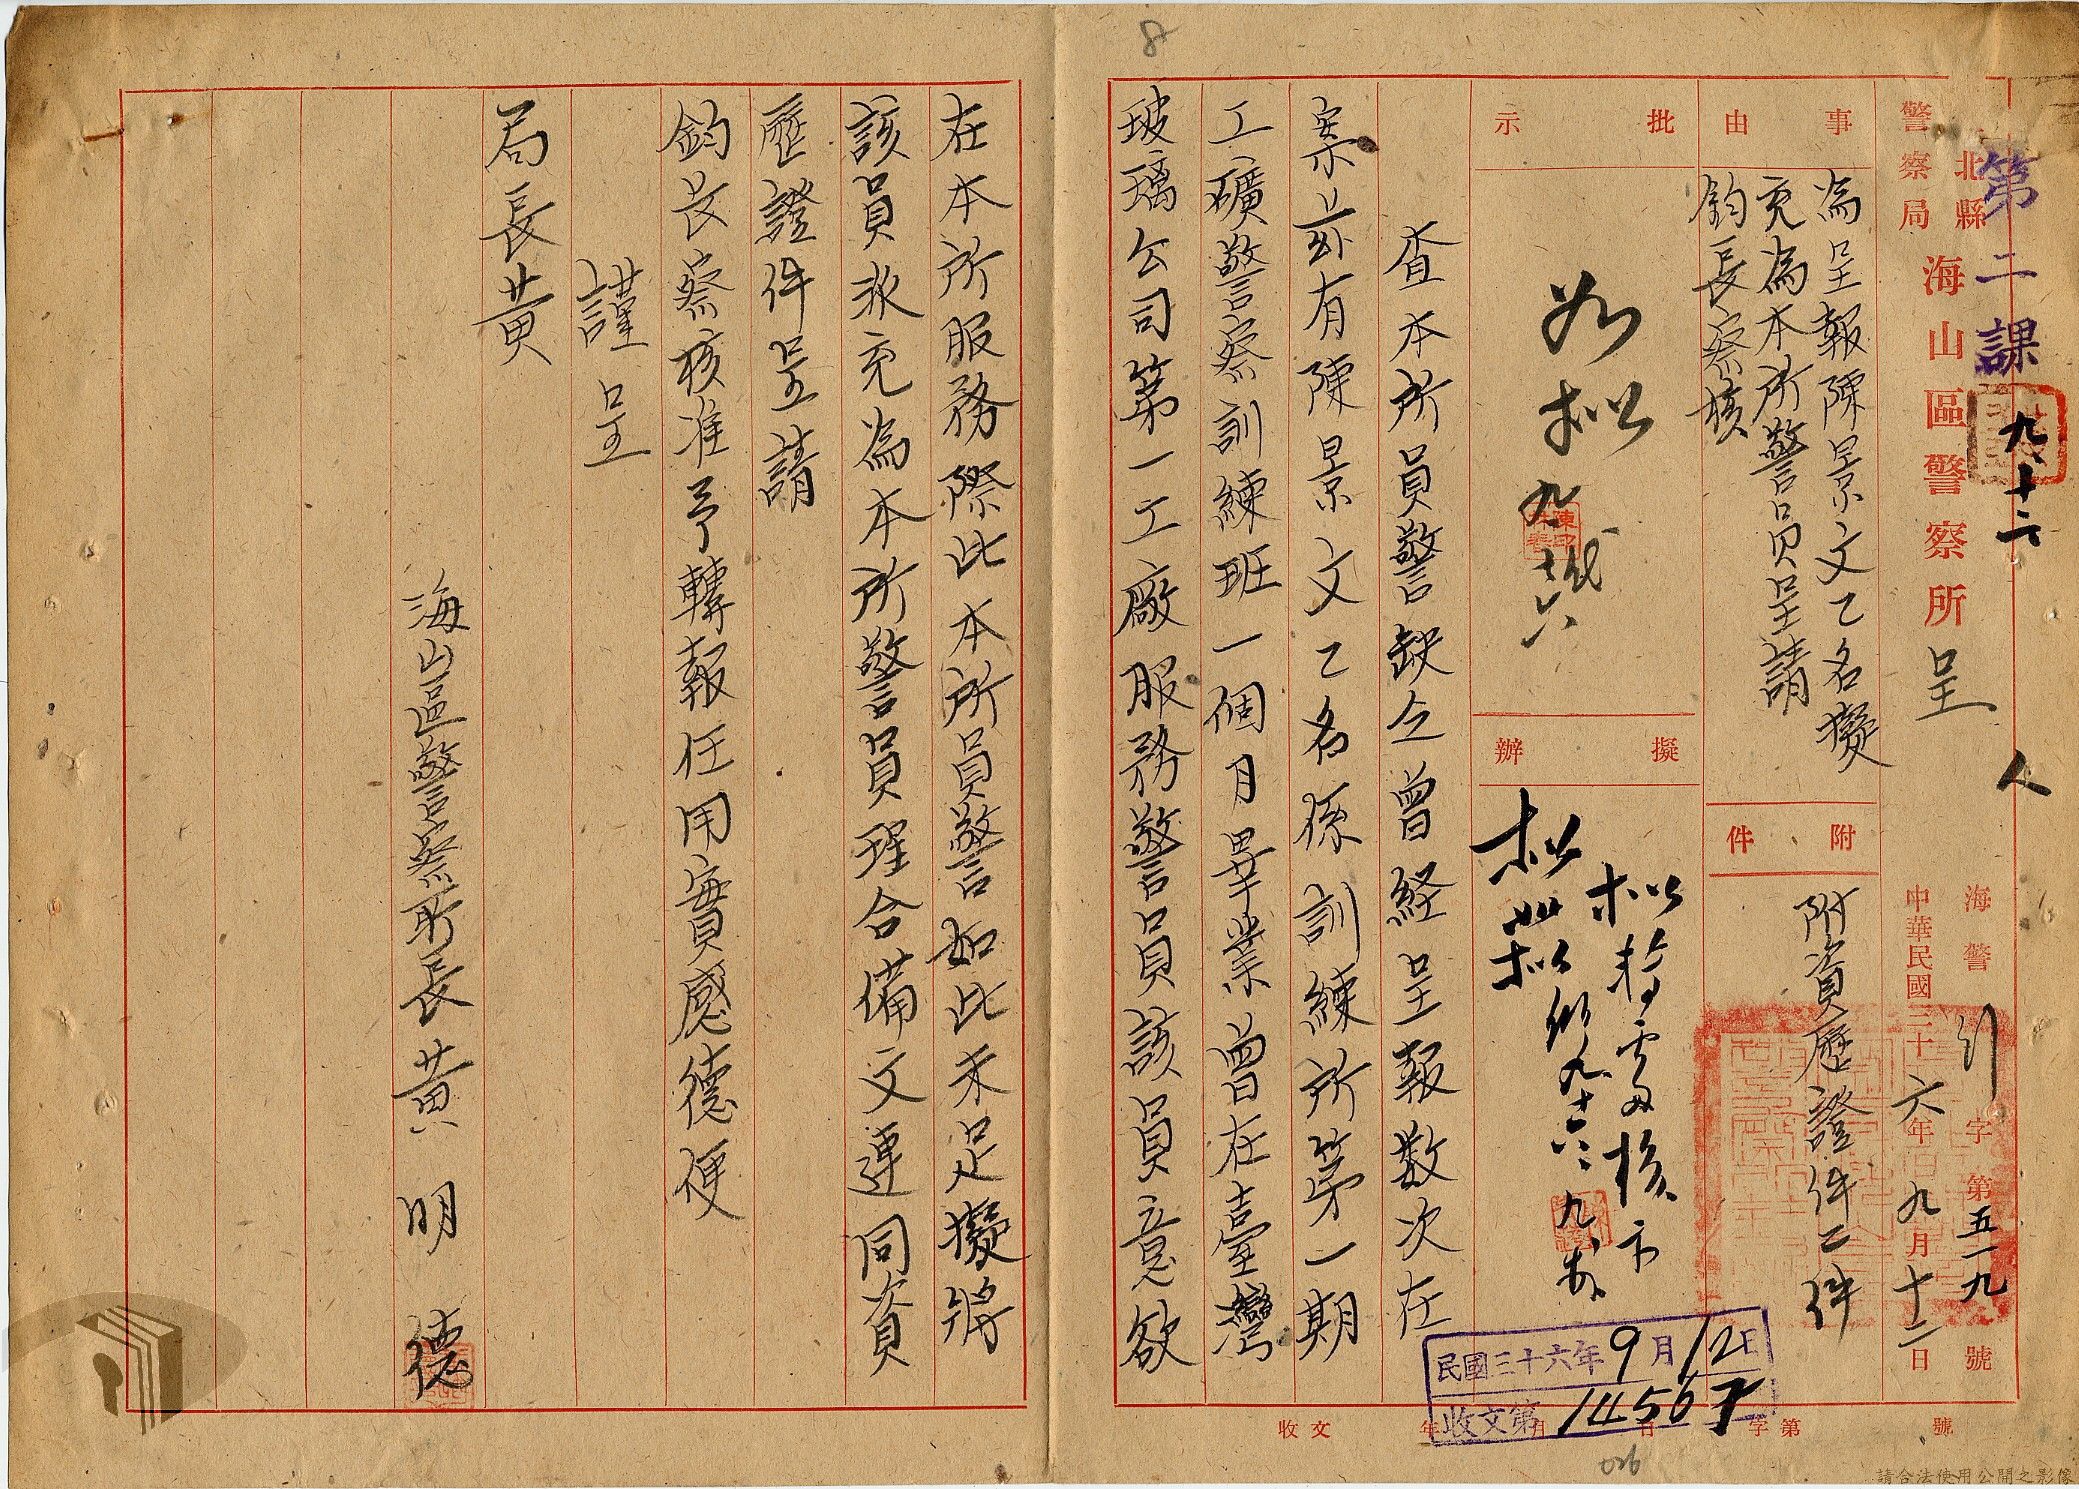 第二課
九、十二
北縣
警察局
海山區警察所呈
人
海警行字第五一九號
中華民國三十六年九月十二日
事由
為呈報陳景文乙名擬
充為本所警員呈請
鈞長察核
附件
附資歷證件二件
批示
如拟
九、十六
擬辦
查本所員警缺乏曾経呈報数次在
案茲有陳景文乙名係訓練所第一期
工礦警察訓練班一個月畢業曾在臺灣
玻璃公司第一工廠服務警員該員意欲
在本所服務際此本所員警如此未足擬将
該員派充為本所警員理合備文連同資
歷證件呈請
鈞長察核准予轉報任用實感德便
謹呈
局長黃
海山區警察所長黃明德
民國三十六年9月12日
收文第14567
收文 年 月 日 字第 號
8
026
請合法使用公開之影像